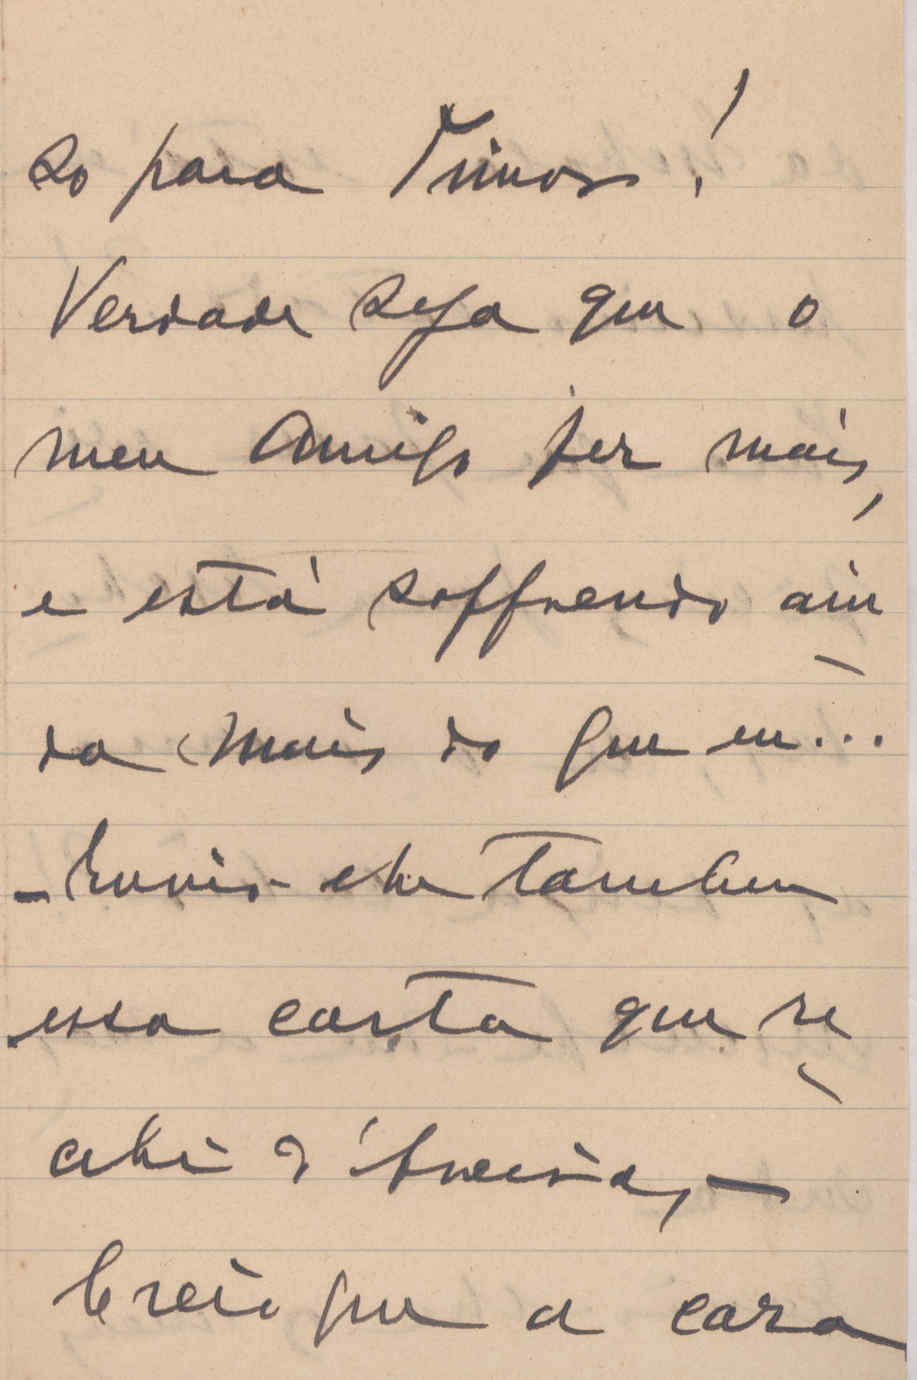 so para Timor!
Verdade seja que o
meu amigo fez mais,
e está soffrendo ain
da mais do que eu...
- Envio-lhe tambem
essa carta que re
cebi d'
Creio que a cara